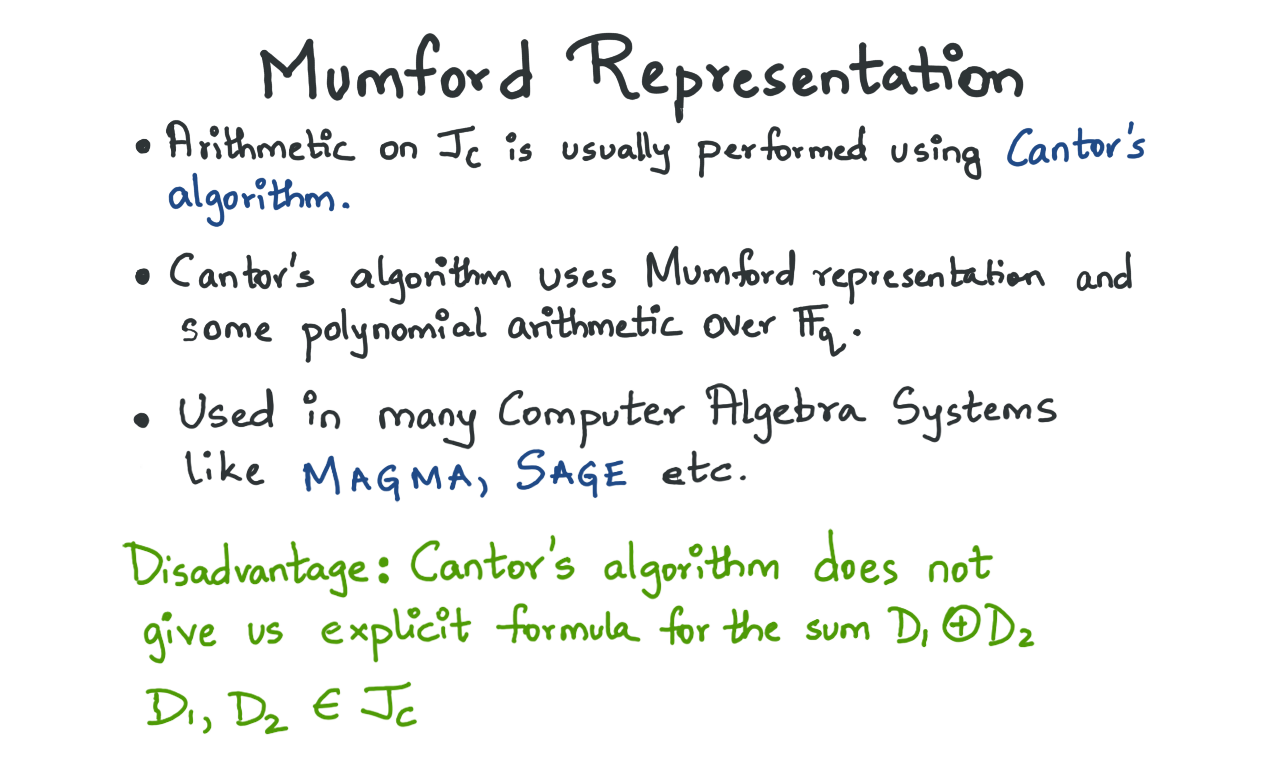 Mumford Representation
• Arithmetic on J_C is usually performed using Cantor's
algorithm.
• Cantor's algorithm uses Mumford representation and
some polynomial arithmetic over 𝔽_q.
• Used in many Computer Algebra Systems
like MAGMA, SAGE etc.
Disadvantage: Cantor's algorithm does not
give us explicit formula for the sum D₁ ⊕ D₂
D₁, D₂ ∈ J_C